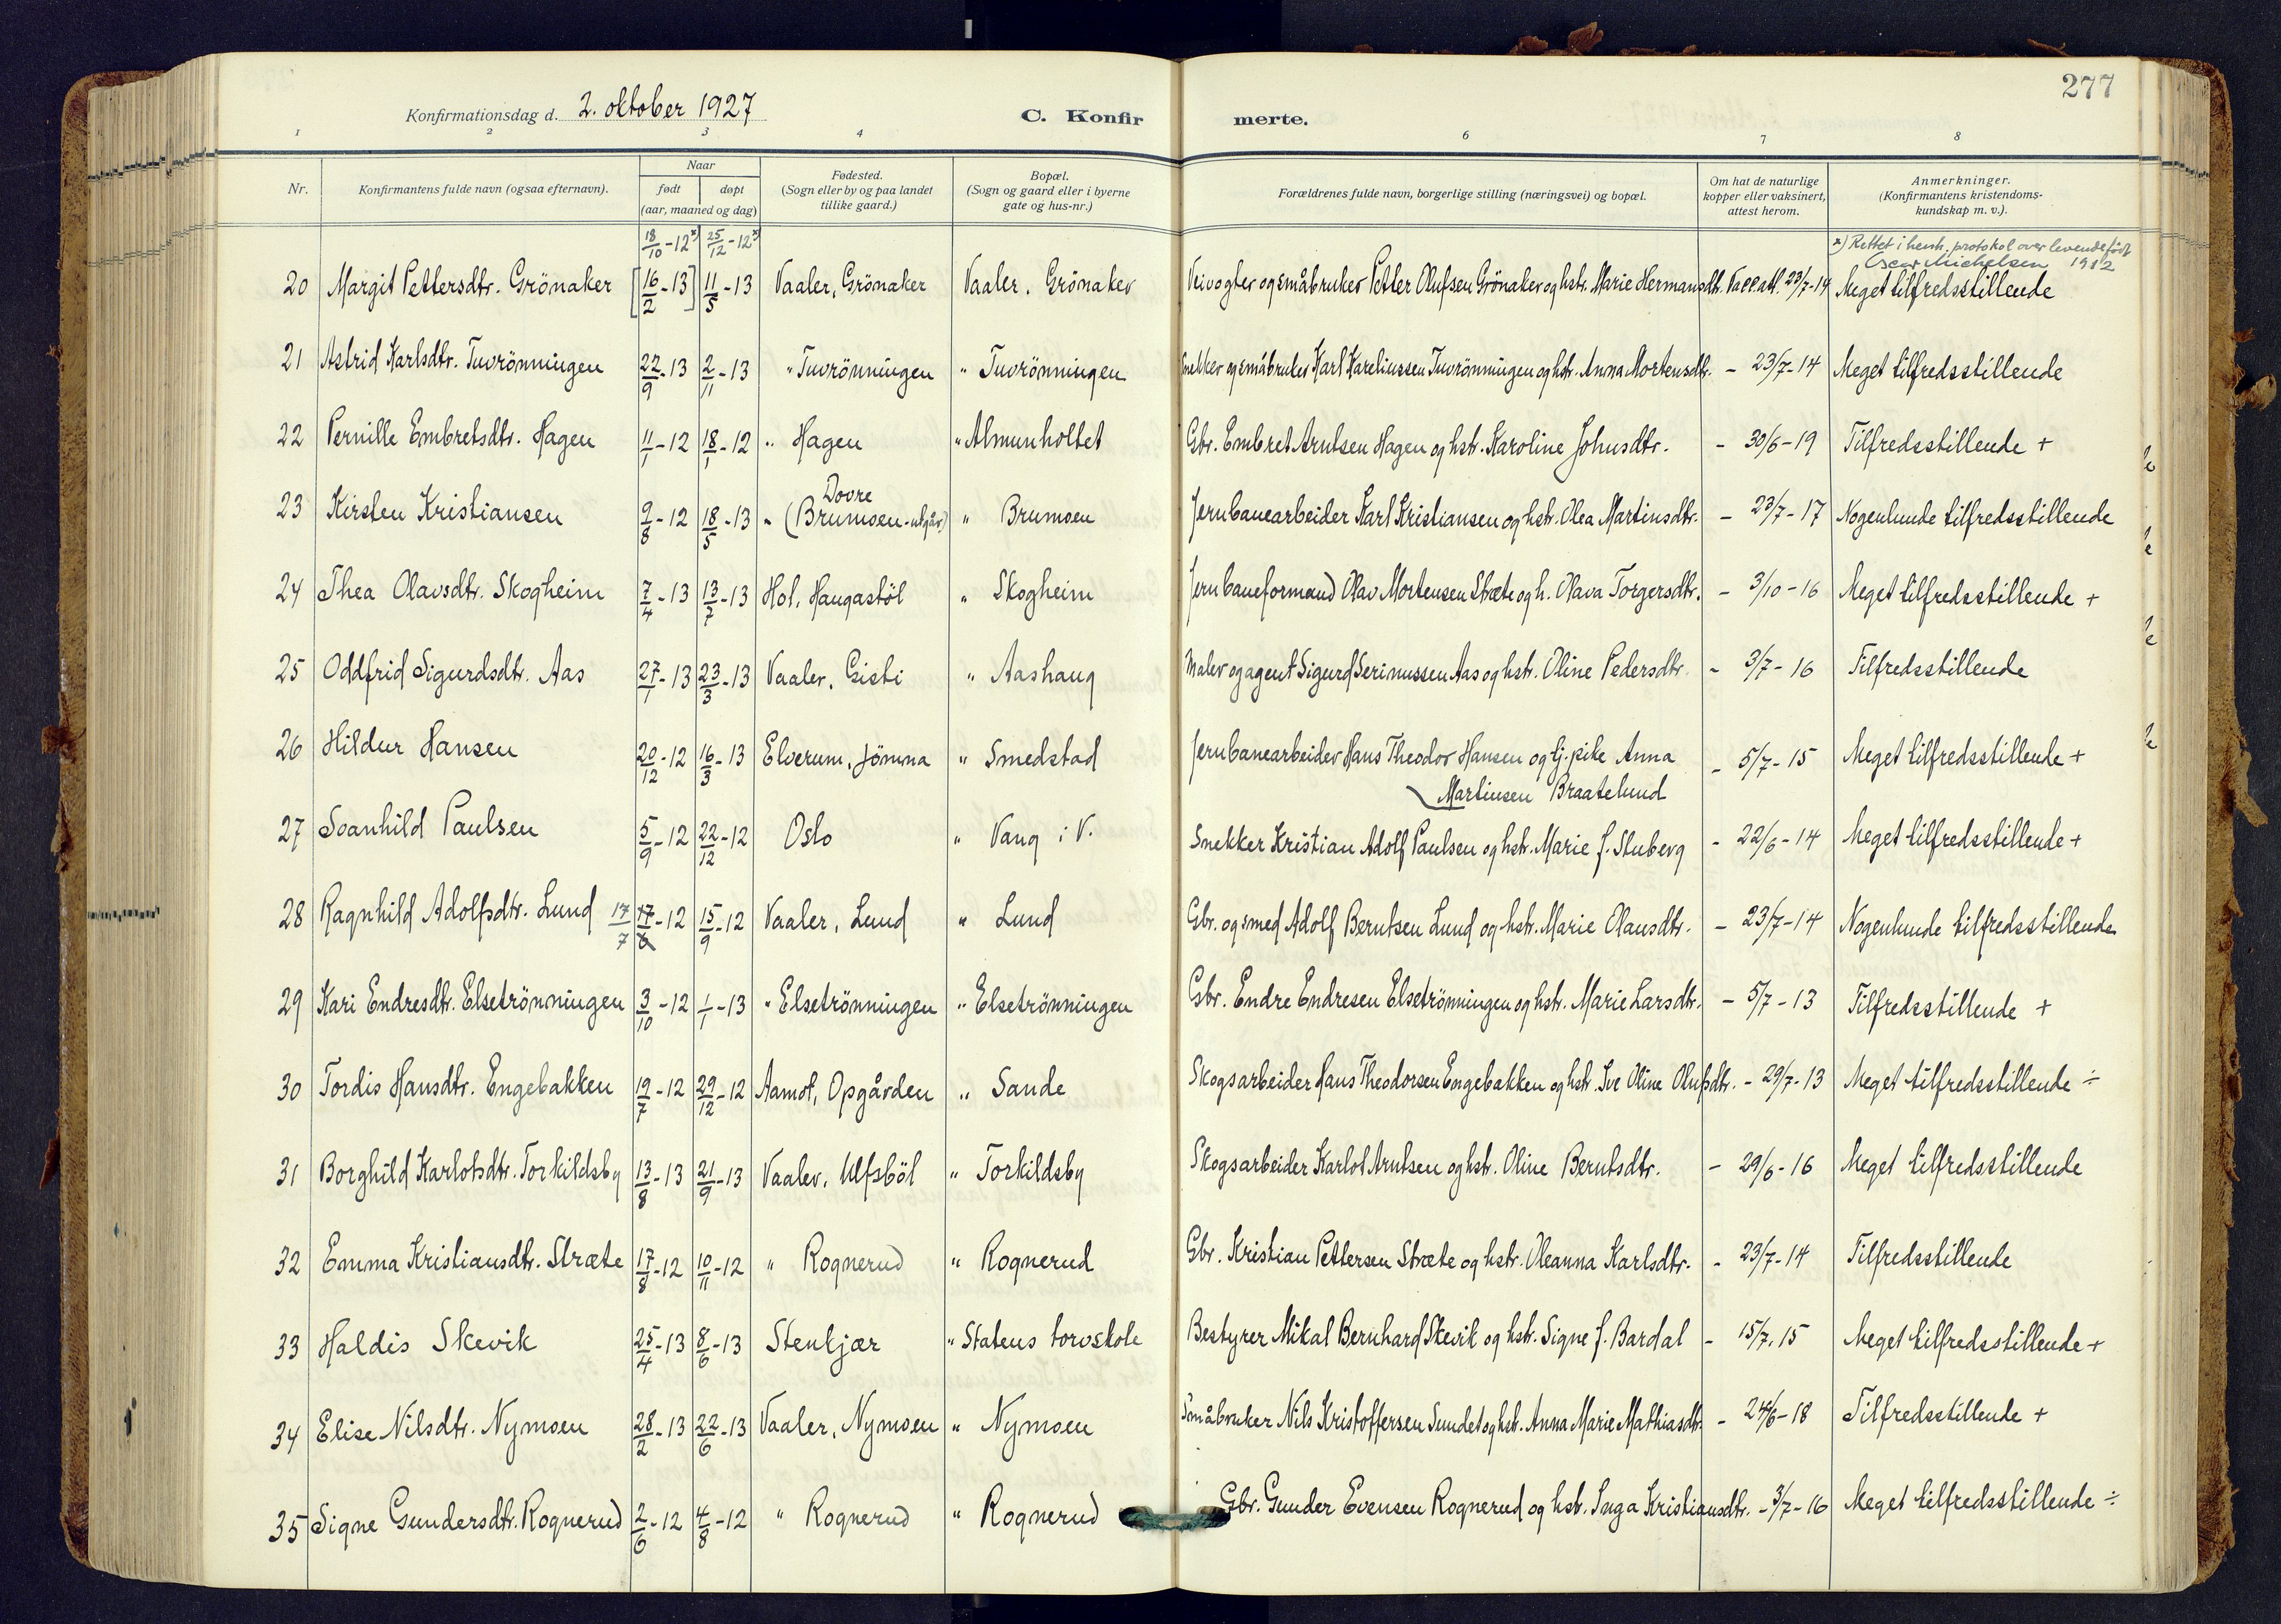 277
Konfirmationsdag d. 2. oktober 1927 C. Konfirmerte.
1 2 3 4 6 7 8
Nr. Konfirmantens fulde navn (ogsaa efternavn). Naar født døpt (aar, maaned og dag) Fødested. (Sogn eller by og paa landet tillike gaard.) Bopæl. (Sogn og gaard eller i byerne gate og hus-nr.) Forældrenes fulde navn, borgerlige stilling (næringsvei) og bopæl. Om hat de naturlige kopper eller vaksinert, attest herom. Anmerkninger. (Konfirmantens kristendoms-kundskap m. v.).
18/10-12 x) 25/12-12 x) x) Rettet i henh. protokol over levende født 1912
Oscar Michelsen
20 Margit Pettersdtr. Grönaker [16/2-13] 11/5-13 Vaaler, Grönaker Vaaler. Grönaker Veivogter og småbruker Petter Olufsen Grönaker og hstr. Marie Hermansdtr. Vacc.att. 23/7-14 Meget tilfredsstillende
21 Astrid Karlsdtr. Tuvrönningen 22/9-13 2/11-13 " Tuvrönningen " Tuvrönningen Snekker og småbruker Karl Kareliussen Tuvrönningen og hstr. Anna Mortensdtr. - 23/7-14 Meget tilfredsstillende
22 Pernille Embretsdtr. Hagen 11/1-12 18/1-12 " Hagen " Almunholtet Gbr. Embret Arntsen Hagen og hstr. Karoline Johnsdtr. - 30/6-19 Tilfredsstillende +
23 Kirsten Kristiansen 9/8-12 18/5-13 " Dovre (Brumoen-utgår) " Brumoen Jernbanearbeider Karl Kristiansen og hstr. Olea Martinsdtr. - 23/7-17 Nogenlunde tilfredsstillende
24 Thea Olavsdtr. Skogheim 7/4-13 13/7-13 Hol, Haugastöl " Skogheim Jernbaneformand Olav Mortensen Stræte og h. Olava Torgersdtr. - 3/10-16 Meget tilfredsstillende +
25 Oddfrid Sigurdsdtr. Aas 27/1-13 23/3-13 Vaaler, Gisti " Aashaug Maler og agent Sigurd Serinussen Aas og hstr. Oline Pedersdtr. - 3/7-16 Tilfredsstillende
26 Hildur Hansen 20/12-12 16/3-13 Elverum, Jömna " Smedstad Jernbanearbeider Hans Theodor Hansen og tj. pike Anna - 5/7-15 Meget tilfredsstillende +
Martinsen Braatelund
27 Svanhild Paulsen 5/9-12 22/12-12 Oslo " Vang i V. Snekker Kristian Adolf Paulsen og hstr. Marie f. Stuberg - 22/6-14 Meget tilfredsstillende +
28 Ragnhild Adolfsdtr. Lund 17/7 17/6-12 15/9-12 Vaaler, Lund " Lund Gbr. og smed Adolf Berntsen Lund og hstr. Marie Olausdtr. - 23/7-14 Nogenlunde tilfredsstillende
29 Kari Endresdtr. Elsetrönningen 3/10-12 1/1-13 " Elsetrönningen " Elsetrönningen Gbr. Endre Endresen Elsetrönningen og hstr. Marie Larsdtr. - 5/7-13 Tilfredsstillende +
30 Tordis Hansdtr. Engebakken 19/7-12 29/12-12 Aamot, Opgården " Sande Skogsarbeider Hans Theodorsen Engebakken og hstr. Ive Oline Olufsdtr. - 29/7-13 Meget tilfredsstillende ÷
31 Borghild Karlotsdtr. Torkildsby 13/8-13 21/9-13 Vaaler, Ulfsböl " Torkildsby Skogsarbeider Karlot Arntsen og hstr. Oline Berntsdtr. - 29/6-16 Meget tilfredsstillende
32 Emma Kristiansdtr. Stræte 17/8-12 10/11-12 " Rognerud " Rognerud Gbr. Kristian Pettersen Stræte og hstr. Oleanna Karlsdtr. - 23/7-14 Tilfredsstillende
33 Haldis Skevik 25/4-13 8/6-13 Stenkjær " Statens torvskole Bestyrer Mikal Bernhard Skevik og hstr. Signe f. Bardal - 15/7.15 Meget tilfredsstillende +
34 Elise Nilsdtr. Nymoen 28/2-13 22/6-13 Vaaler, Nymoen " Nymoen Småbruker Nils Kristoffersen Sundet og hstr. Anna Marie Mathiasdtr. - 24/6-18 Tilfredsstillende +
35 Signe Gundersdtr. Rognerud 2/6-12 4/8-12 " Rognerud " Rognerud Gbr. Gunder Evensen Rognerud og hstr. Inga Kristiansdtr. - 3/7-16 Meget tilfredsstillende ÷